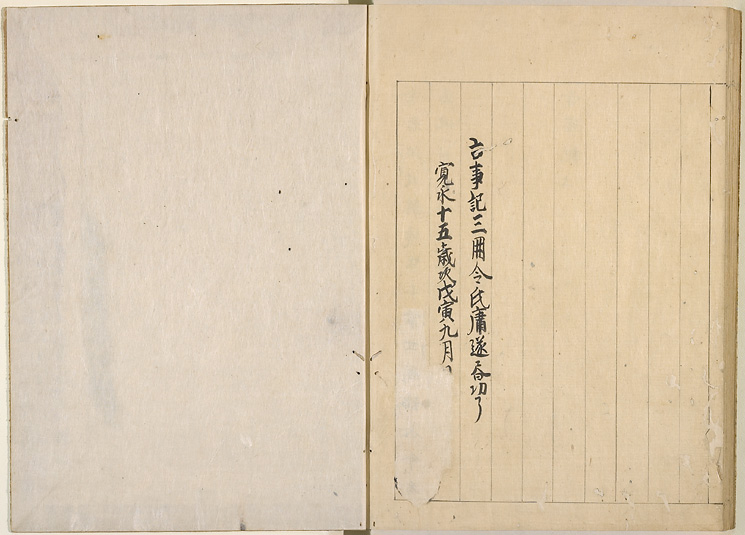 古事記三冊令氏庸遂舂功了
寛永十五歳次戊寅九月